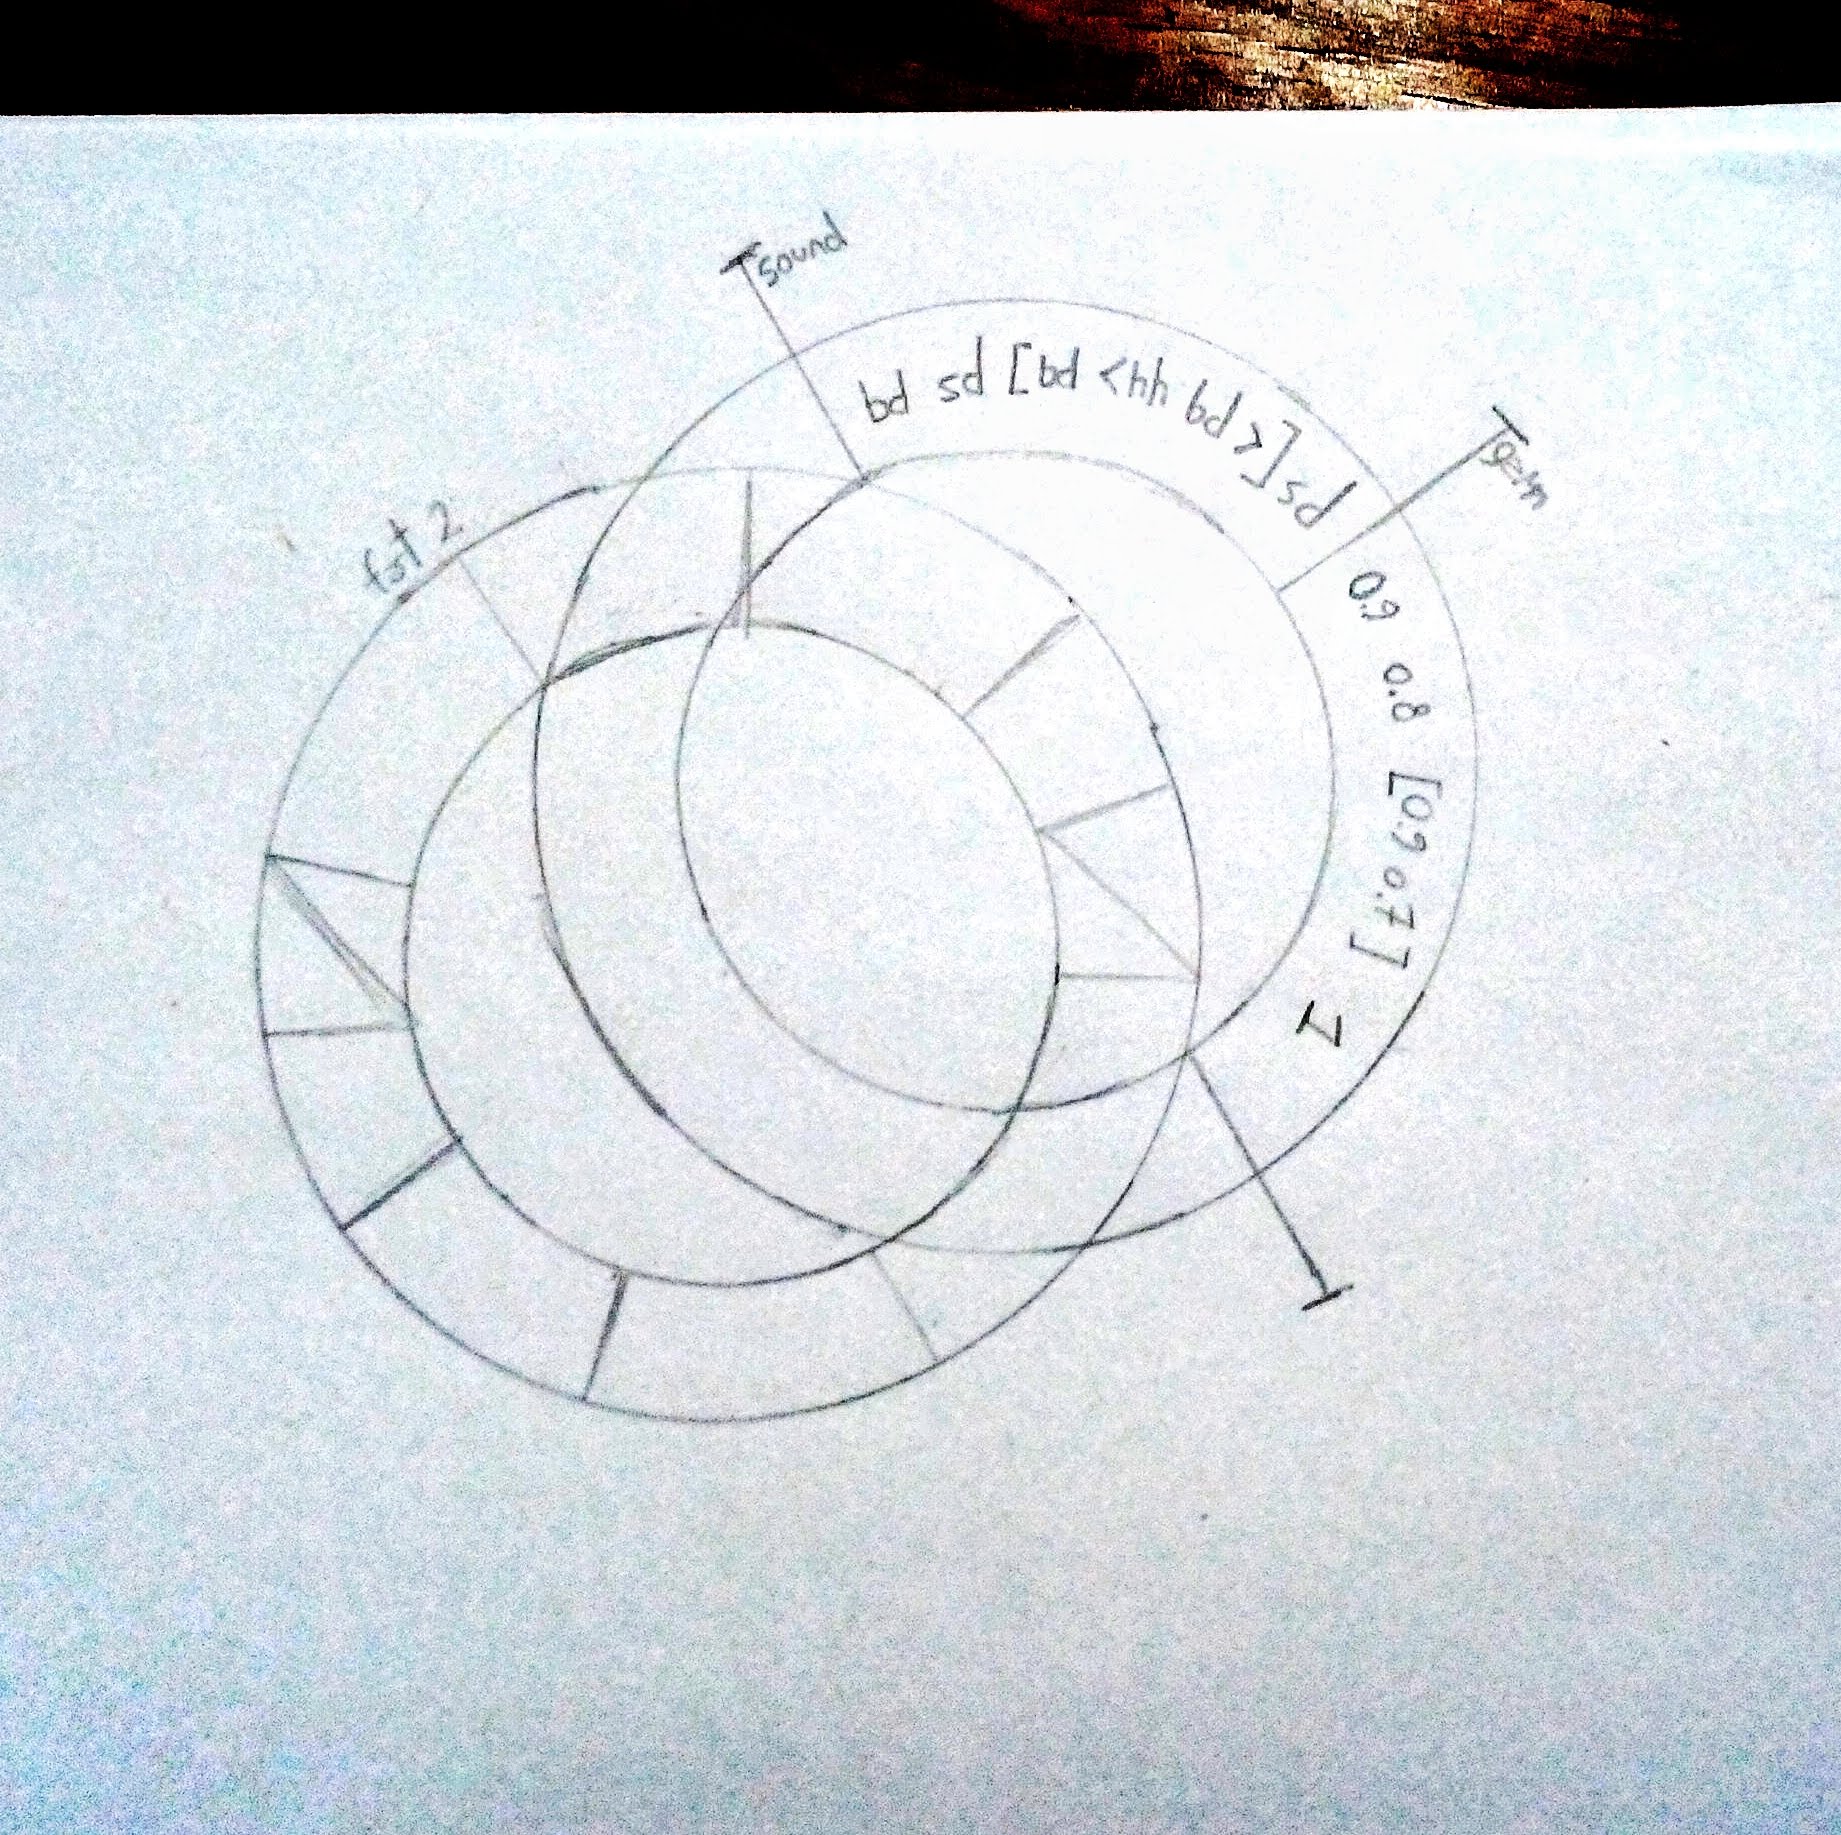 sound
bd sd [bd <hh bd>] sd
gain
0.9 0.8 [0.9 0.7] 1
fast 2